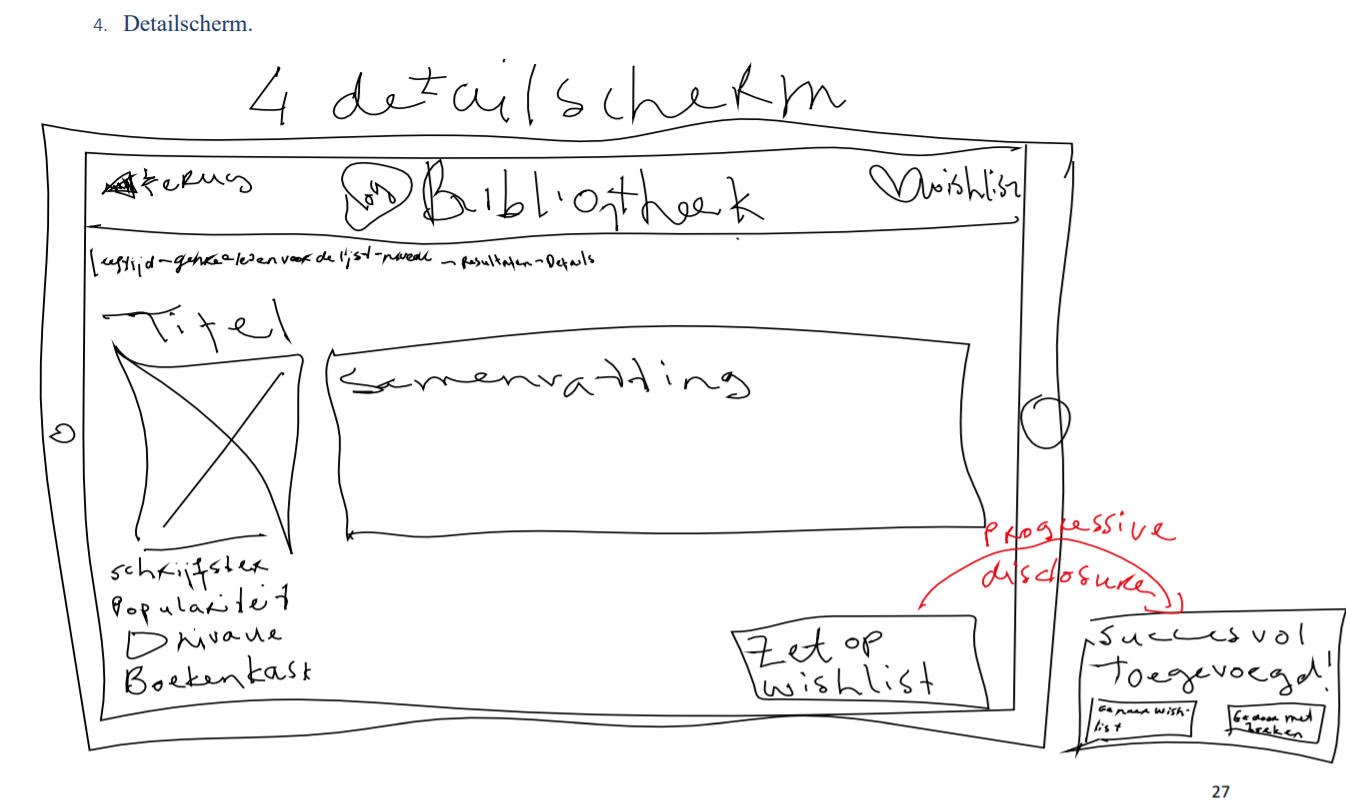 4. Detailscherm.
4 detailscherm
terug
logo Bibliotheek
wishlist
Leeftijd - genre - lezen voor de lijst - niveau - Resultaten - Details
Titel
Samenvatting
progressive
disclosure
schrijfster
Populariteit
Niveau
Boekenkast
Zet op
wishlist
Succesvol
toegevoegd!
Ga naar wish-
list
Ga door met
zoeken
27